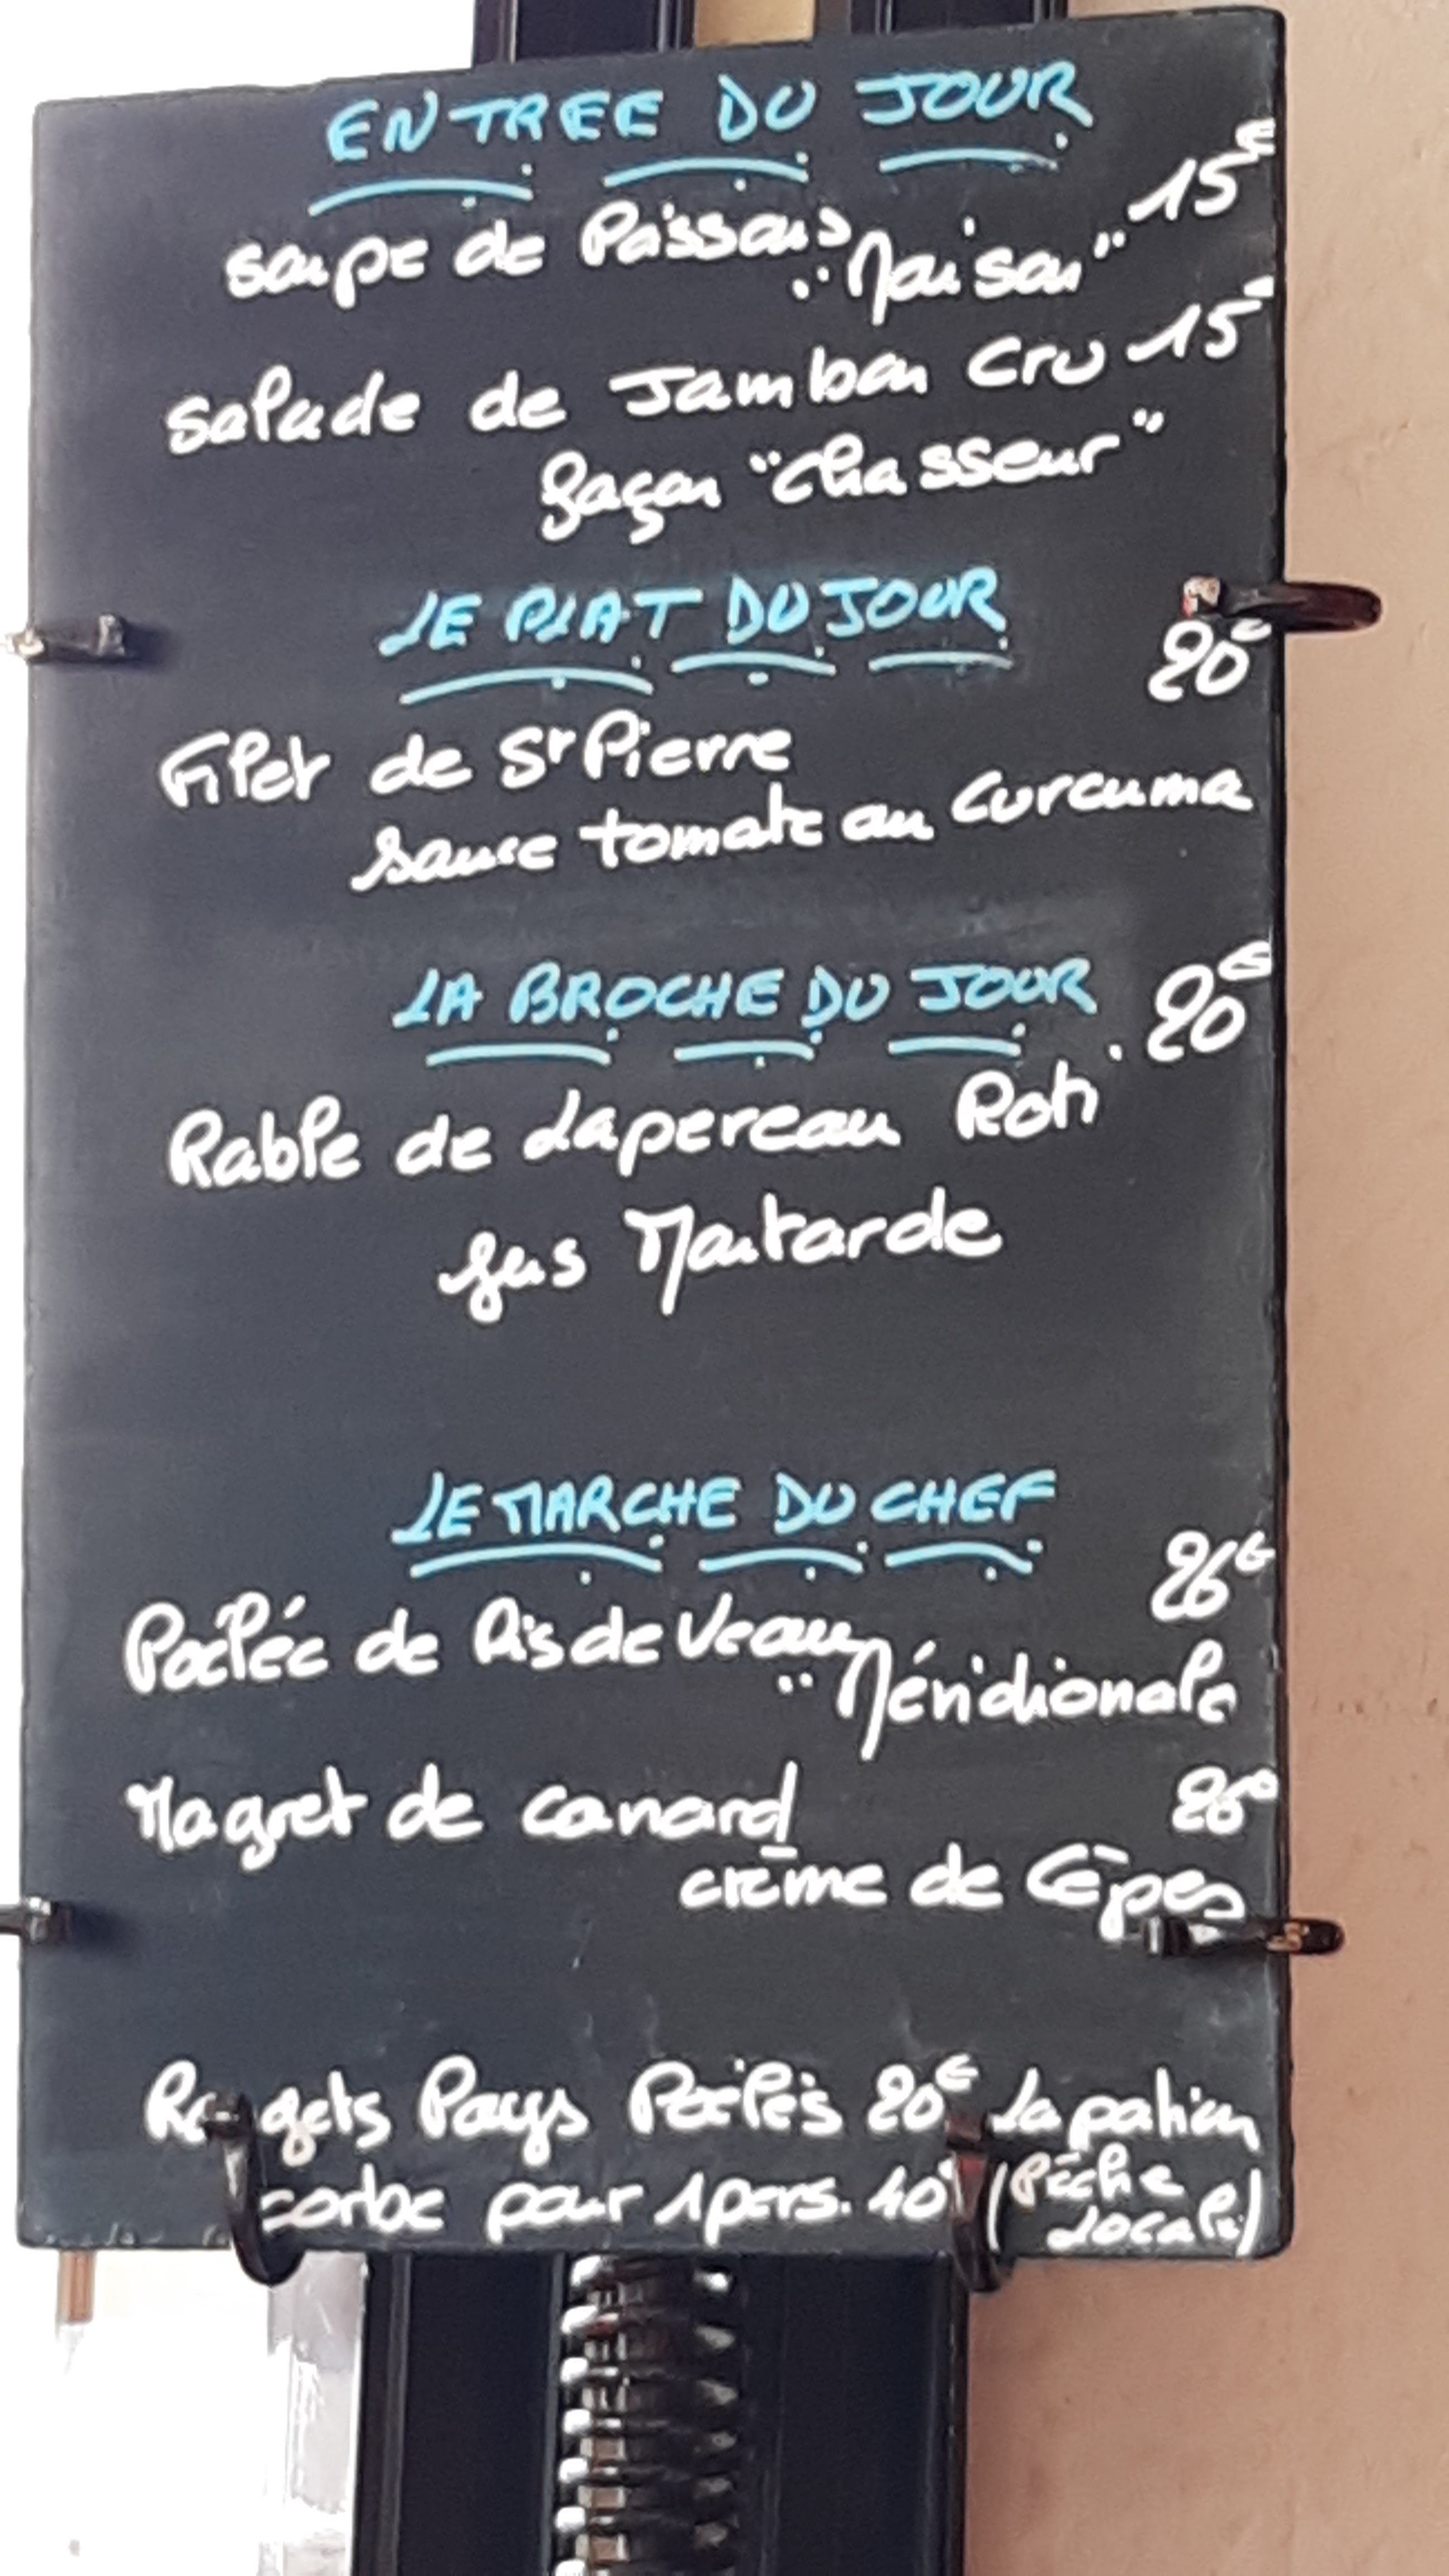 ENTREE DU JOUR
soupe de Poissons "Maison" 15€
salade de Jambon Cru 15€
façon "chasseur"
LE PLAT DU JOUR
20€
Filet de St Pierre
sauce tomate au curcuma
LA BROCHE DU JOUR 20€
Rable de Lapereau Roti
jus Moutarde
LE MARCHE DU CHEF
26€
Poêlée de Ris de Veau
"Méridionale
Magret de canard 26€
crème de Cèpes
Pays Poêlés 20€ La portion
pour 1 pers. 40€ (Pêche
Locale)